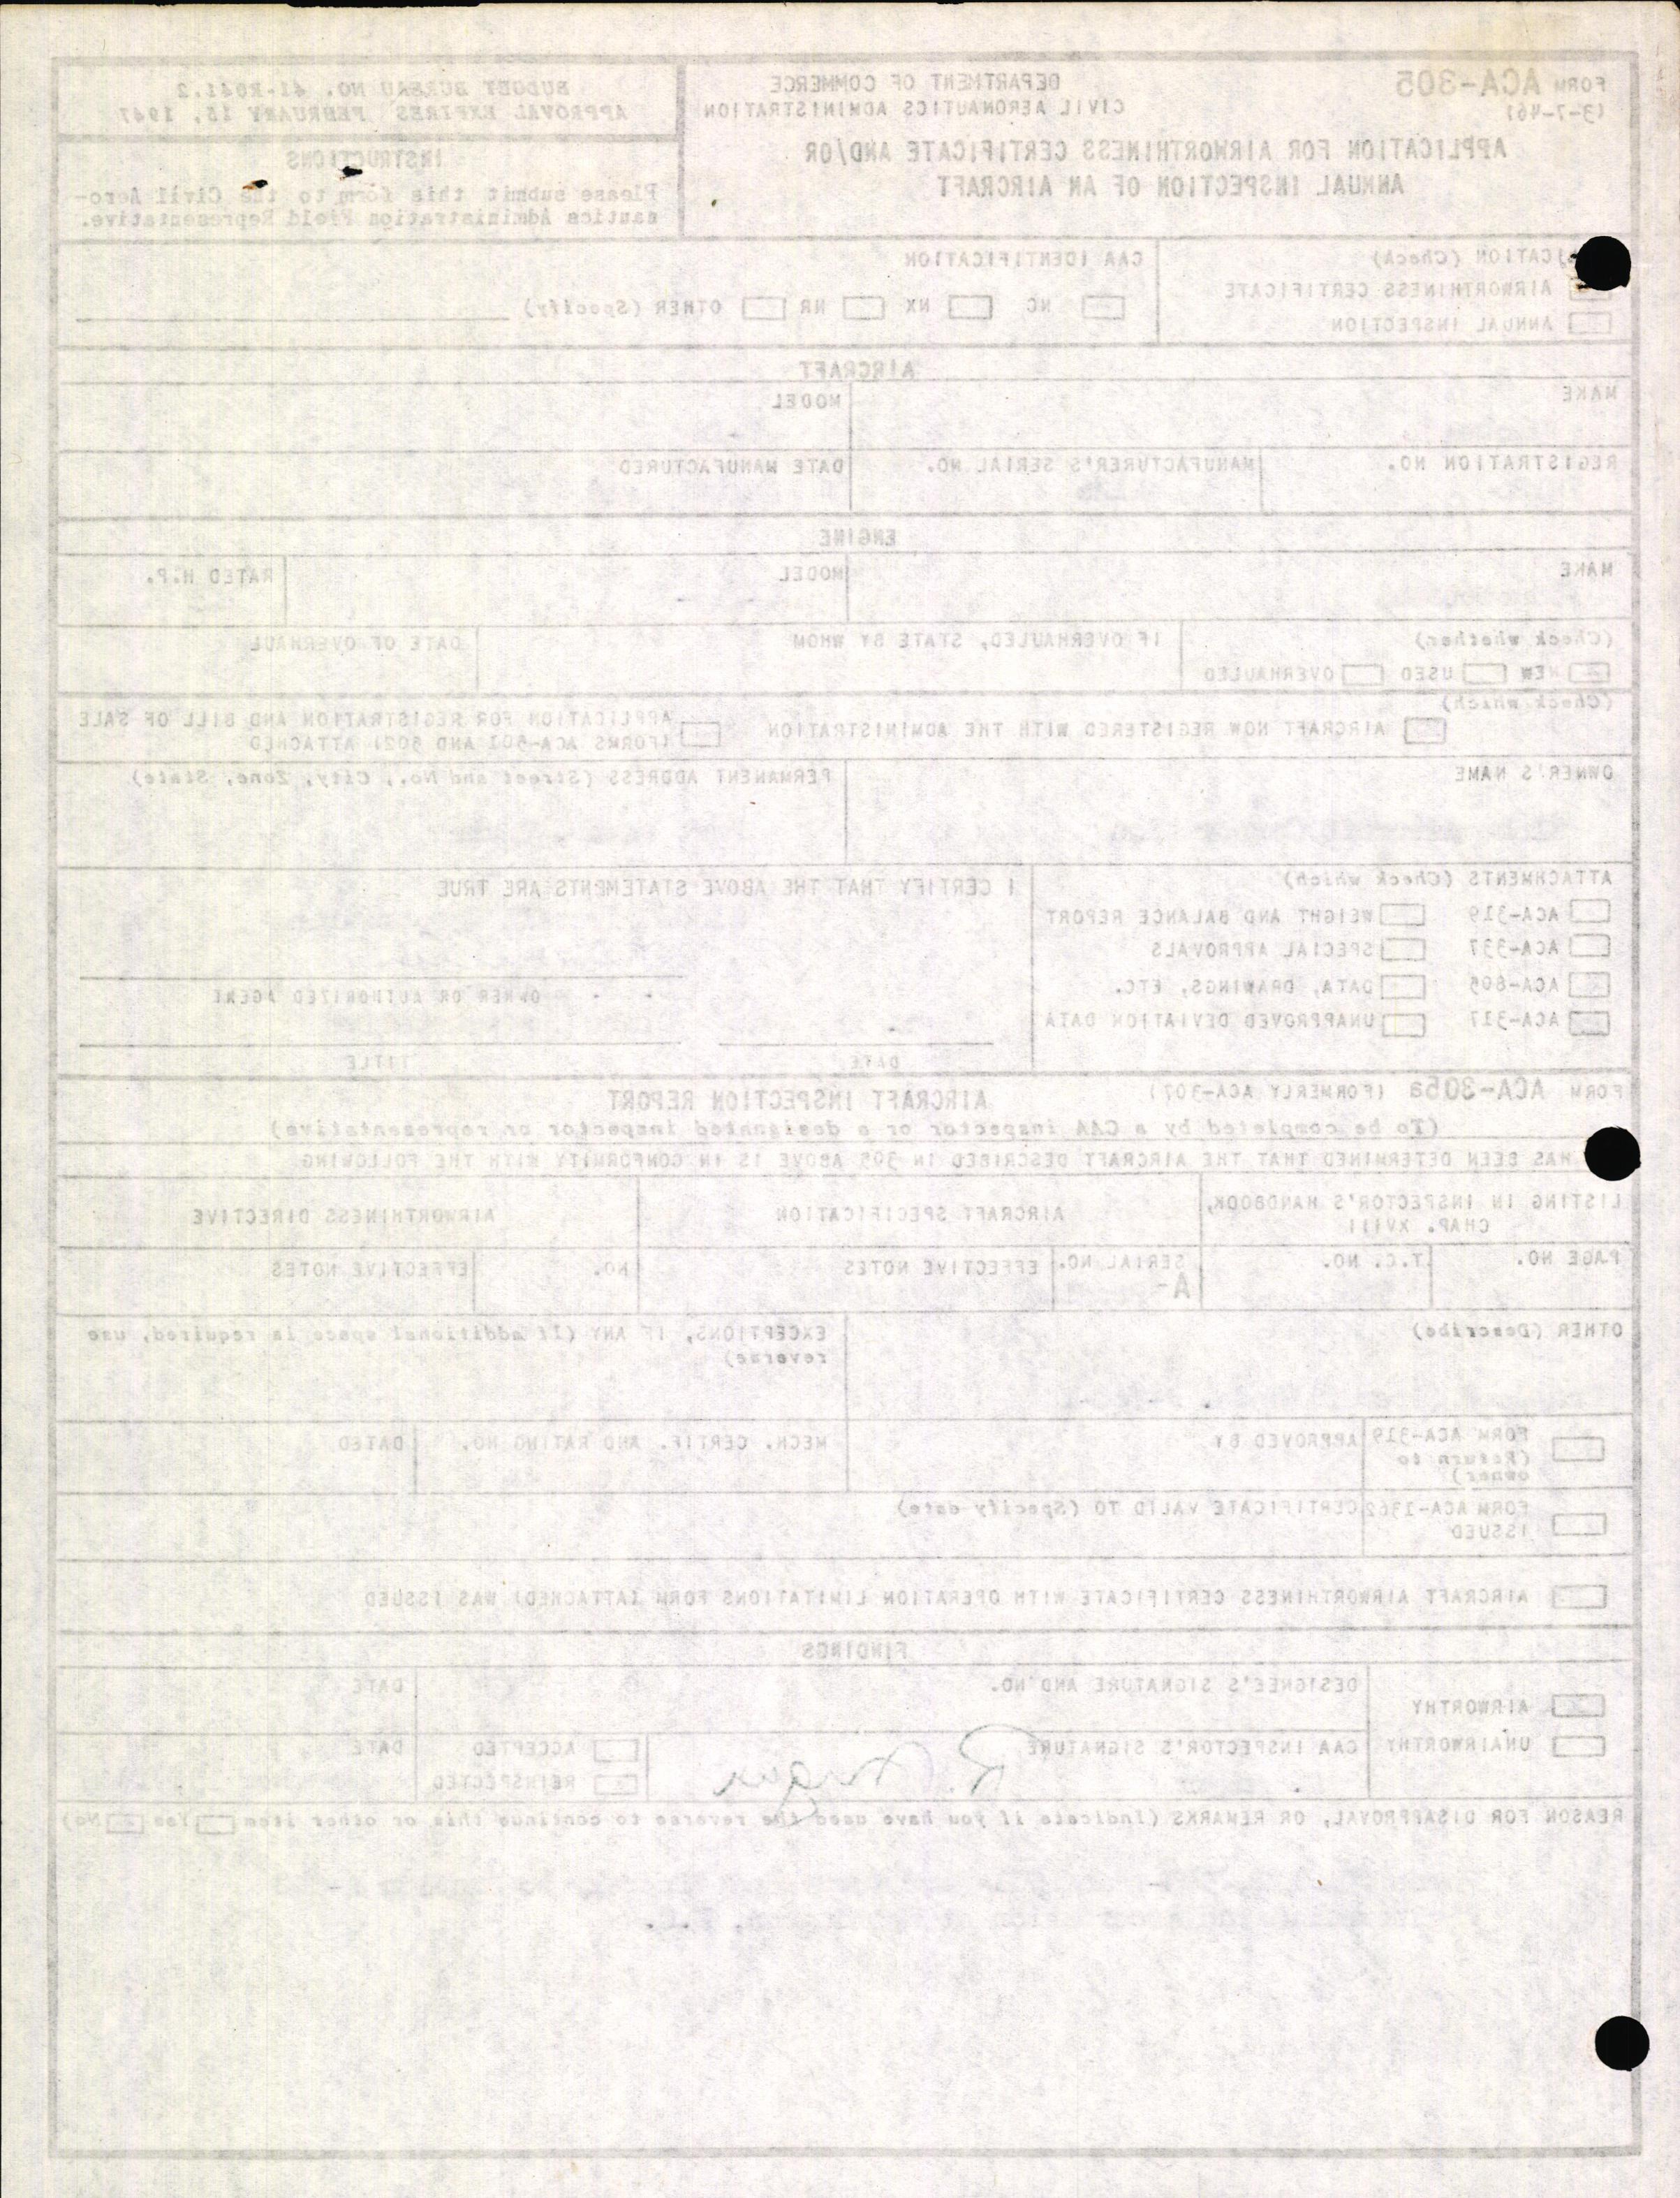 FORM ACA-305
(3-7-46)
DEPARTMENT OF COMMERCE
CIVIL AERONAUTICS ADMINISTRATION
APPLICATION FOR AIRWORTHINESS CERTIFICATE AND/OR
ANNUAL INSPECTION OF AN AIRCRAFT
BUDGET BUREAU NO. 41-R041.2
APPROVAL EXPIRES FEBRUARY 15, 1947
INSTRUCTIONS
Please submit this form to the Civil Aero-
nautics Administration Field Representative.
(Check)
AIRWORTHINESS CERTIFICATE
ANNUAL INSPECTION
CAA IDENTIFICATION
NC NX NR OTHER (Specify)
AIRCRAFT
MAKE
MODEL
REGISTRATION NO.
MANUFACTURER'S SERIAL NO.
DATE MANUFACTURED
ENGINE
MAKE
MODEL
RATED H.P.
(Check whether)
NEW USED OVERHAULED
IF OVERHAULED, STATE BY WHOM
DATE OF OVERHAUL
(Check which)
AIRCRAFT NOW REGISTERED WITH THE ADMINISTRATION
APPLICATION FOR REGISTRATION AND BILL OF SALE
(FORMS ACA-501 AND 502) ATTACHED
OWNER'S NAME
PERMANENT ADDRESS (Street and No., City, Zone, State)
ATTACHMENTS (Check which)
ACA-319 WEIGHT AND BALANCE REPORT
ACA-337 SPECIAL APPROVALS
ACA-805 DATA, DRAWINGS, ETC.
ACA-317 UNAPPROVED DEVIATION DATA
I CERTIFY THAT THE ABOVE STATEMENTS ARE TRUE
OWNER OR AUTHORIZED AGENT
DATE
TITLE
FORM ACA-305a (FORMERLY ACA-307)
AIRCRAFT INSPECTION REPORT
(To be completed by a CAA inspector or a designated inspector or representative)
HAS BEEN DETERMINED THAT THE AIRCRAFT DESCRIBED IN 305 ABOVE IS IN CONFORMITY WITH THE FOLLOWING
LISTING IN INSPECTOR'S HANDBOOK,
CHAP. XVIII
AIRCRAFT SPECIFICATION
AIRWORTHINESS DIRECTIVE
PAGE NO.
T.C. NO.
SERIAL NO.
A-
EFFECTIVE NOTES
NO.
EFFECTIVE NOTES
OTHER (Describe)
EXCEPTIONS, IF ANY (If additional space is required, use
reverse)
FORM ACA-319
(Return to
owner)
APPROVED BY
MECH. CERTIF. AND RATING NO.
DATED
FORM ACA-1362
ISSUED
CERTIFICATE VALID TO (Specify date)
AIRCRAFT AIRWORTHINESS CERTIFICATE WITH OPERATION LIMITATIONS FORM (ATTACHED) WAS ISSUED
FINDINGS
AIRWORTHY
UNAIRWORTHY
DESIGNEE'S SIGNATURE AND NO.
DATE
CAA INSPECTOR'S SIGNATURE
ACCEPTED
REINSPECTED
DATE
REASON FOR DISAPPROVAL, OR REMARKS (Indicate if you have used the reverse to continue this or other item Yes No)